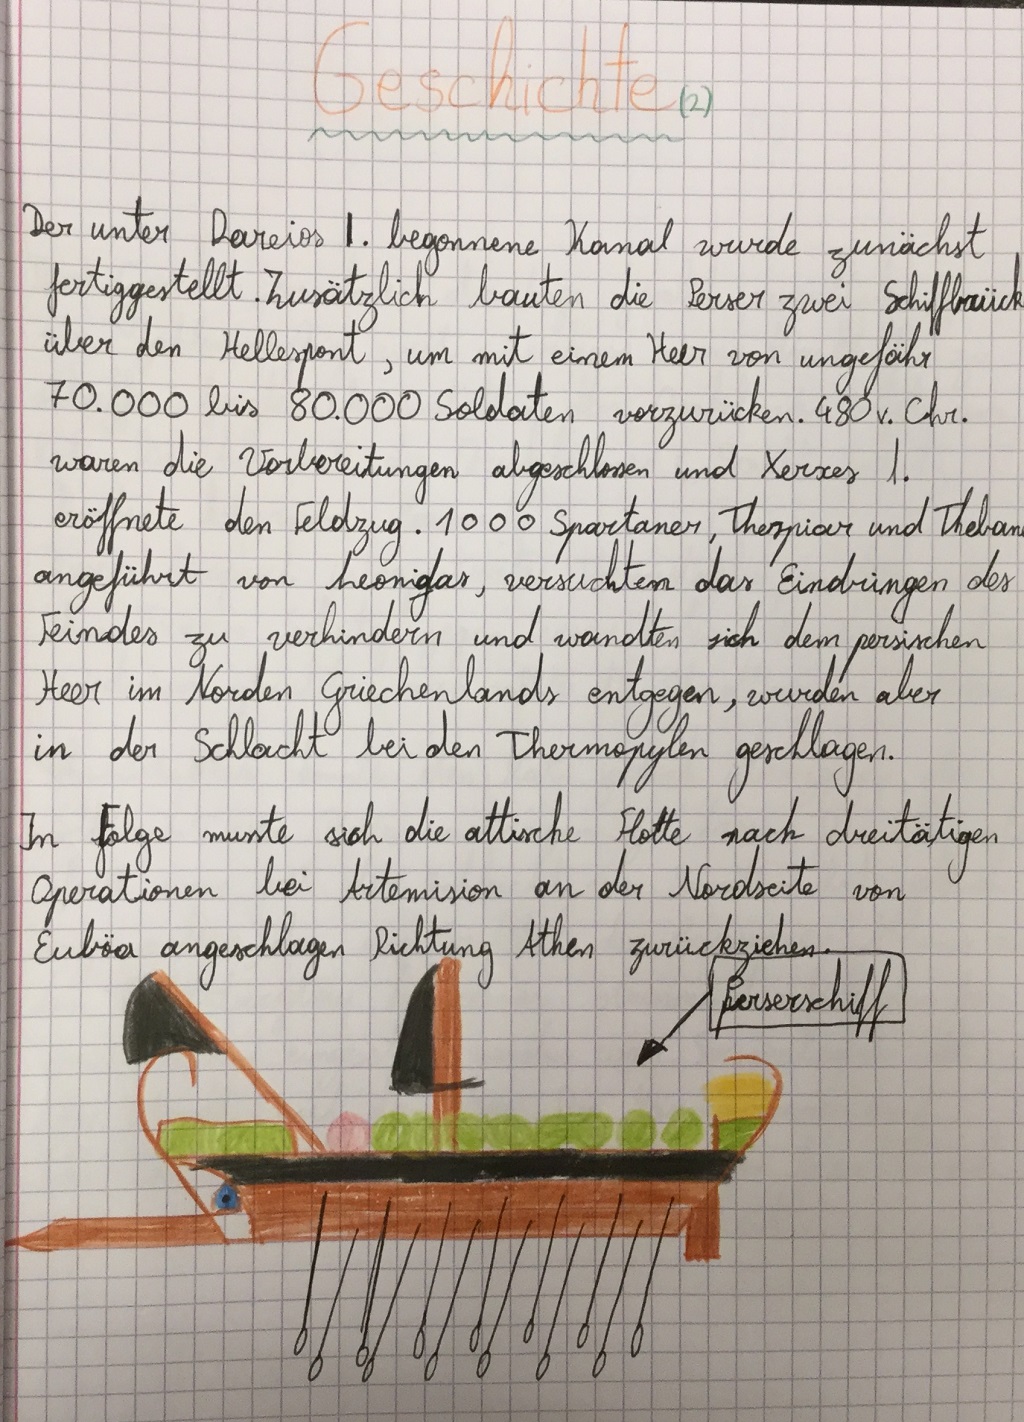 Geschichte (2)
Der unter Dareios I. begonnene Kanal wurde zunächst
fertiggestellt. Zusätzlich bauten die Perser zwei Schiffbrück
über den Hellespont, um mit einem Heer von ungefähr
70.000 bis 80.000 Soldaten vorzurücken. 480 v. Chr.
waren die Vorbereitungen abgeschlossen und Xerxes I.
eröffnete den Feldzug. 1000 Spartaner, Thespiar und Theban
angeführt von Leonidas, versuchten das Eindringen des
Feindes zu verhindern und wandten sich dem persischen
Heer im Norden Griechenlands entgegen, wurden aber
in der Schlacht bei den Thermopylen geschlagen.
In Folge musste sich die attische Flotte nach dreitätigen
Operationen bei Artemision an der Nordseite von
Euböa angeschlagen Richtung Athen zurückziehen.
Perserschiff